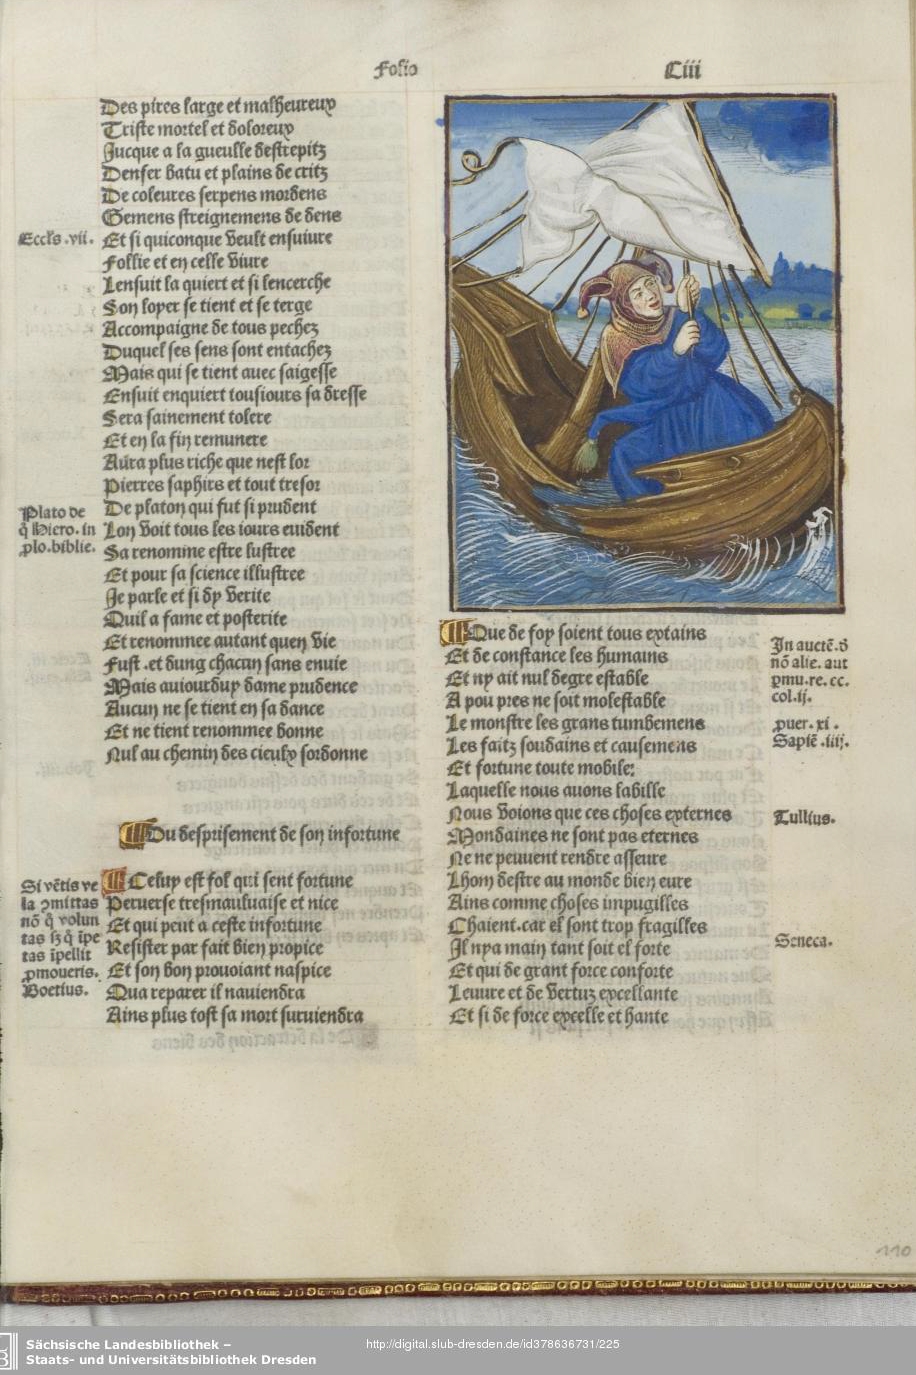 Folio
Ciii
Des pires large et malheureux
Triste mortel et doloreux
Jucque a la gueulle destrepitz
Denfer batu et plains de critz
De coleures serpens mordens
Gemens streignemens de dens
Eccl's .vii.
Et si quiconque veult ensuiure
Follie et en celle viure
Lensuit la quiert et si lencerche
Son loyer se tient et se terge
Accompaigne de tous pechez
Duquel ses sens sont entachez
Mais qui se tient auec saigesse
Ensuit enquiert tousiours sa dresse
Sera sainement tolere
Et en la fin remunere
Aura plus riche que nest lor
Pierres saphirs et tout tresor
Plato de
q̃ Hiero. in
plo. biblie.
De platon qui fut si prudent
Lon voit tous les iours euident
Sa renomme estre lustree
Et pour sa science illustree
Je parle et si dy verite
Quil a fame et posterite
Et renommee autant quen vie
Fust .et dung chacun sans enuie
Mais auiourduy dame prudence
Aucun ne se tient en sa dance
Et ne tient renommee bonne
Nul au chemin des cieulx sordonne
Du desprisement de son infortune
Si vẽtis ve
la ꝯmittas
nõ q̃ volun
tas sꝫ q̃ ĩpe
tas ĩpellit
ꝓmoueris.
Boetius.
Celuy est fol qui sent fortune
Peruerse tresmauluaise et nice
Et qui peut a ceste infortune
Resister par fait bien propice
Et son bon prouoiant naspice
Qua reparer il nauiendra
Ains plus tost sa mort suruiendra
Que de foy soient tous extains
Et de constance les humains
Et ny ait nul degre estable
A pou pres ne soit molestable
Le monstre les grans tumbemens
Les faitz soudains et causemens
Et fortune toute mobile:
Laquelle nous auons labille
Nous voions que ces choses externes
Mondaines ne sont pas eternes
Ne ne peuuent rendre asseure
Lhom destre au monde bien eure
Ains comme choses impugilles
Chaient.car el sont trop fragilles
Il nya main tant soit el forte
Et qui de grant force conforte
Leuure et de vertuz excellante
Et si de force excelle et hante
In auctẽ.d̃
nõ alie. aut
ꝑmu.re. ec.
col.ij.
ꝓuer. xi .
Sapiẽ .iiij.
Tullius.
Seneca.
110
Sächsische Landesbibliothek –
Staats- und Universitätsbibliothek Dresden
http://digital.slub-dresden.de/id378636731/225